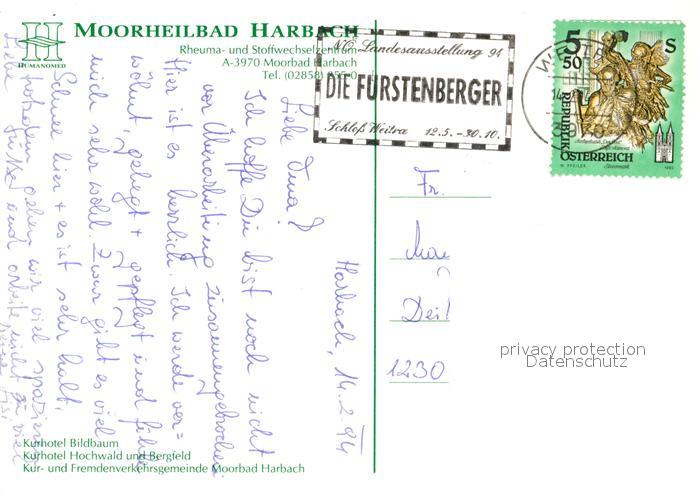 MOORHEILBAD HARBACH
HUMANOMED
Rheuma- und Stoffwechselzentrum
A-3970 Moorbad Harbach
Tel. (02858) 255-0
NÖ Landesausstellung 94
DIE FÜRSTENBERGER
Schloß Weitra 12.5.-30.10.
5 S
50
REPUBLIK
ÖSTERREICH
Harbach, 14.2.94
Liebe Oma!
Ich hoffe Du bist noch nicht
vor Überarbeitung zusammengebrochen
Hier ist es herrlich. Ich werde ver=
wöhnt, gehegt + gepflegt und fühle
mich sehr wohl. Zwar gibt es viel
Schnee hier + es ist sehr kalt,
trotzdem gehen wir viel spazieren
Liebe Grüße und arbeite nicht zu viel
Fr.
1230
privacy protection
Datenschutz
Kurhotel Bildbaum
Kurhotel Hochwald und Bergfeld
Kur- und Fremdenverkehrsgemeinde Moorbad Harbach